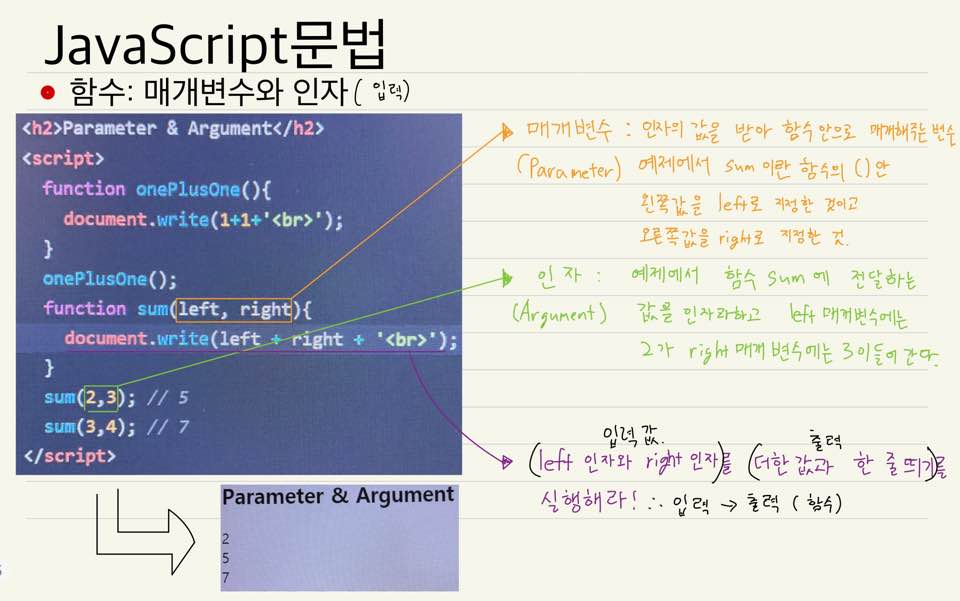 JavaScript문법
함수: 매개변수와 인자 (입력)
<h2>Parameter & Argument</h2>
<script>
function onePlusOne(){
document.write(1+1+'<br>');
}
onePlusOne();
function sum(left, right){
document.write(left + right + '<br>');
}
sum(2,3); // 5
sum(3,4); // 7
</script>
Parameter & Argument
2
5
7
매개변수 : 인자의 값을 받아 함수 안으로 매개해주는 변수
(Parameter) 예제에서 sum 이란 함수의 ( ) 안
왼쪽값을 left로 지정한 것이고
오른쪽값을 right로 지정한 것.
인자 : 예제에서 함수 sum에 전달하는
(Argument) 값을 인자라하고 left 매개변수에는
2가 right 매개 변수에는 3이 들어간다.
입력 값.
출력
(left 인자와 right 인자)를 (더한 값과 한 줄 띄기)를
실행해라! ∴ 입력 → 출력 (함수)